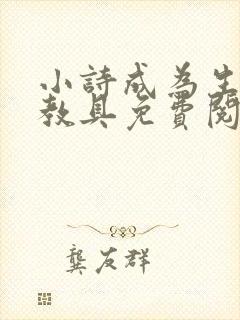 小詩成為生
教具免費閱
龔友群